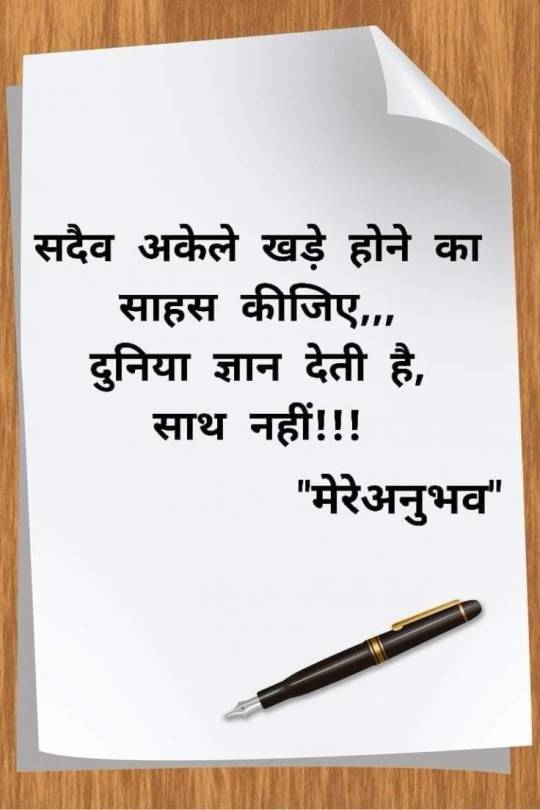 सदैव अकेले खड़े होने का
साहस कीजिए,,,
दुनिया ज्ञान देती है,
साथ नहीं!!!
"मेरेअनुभव"